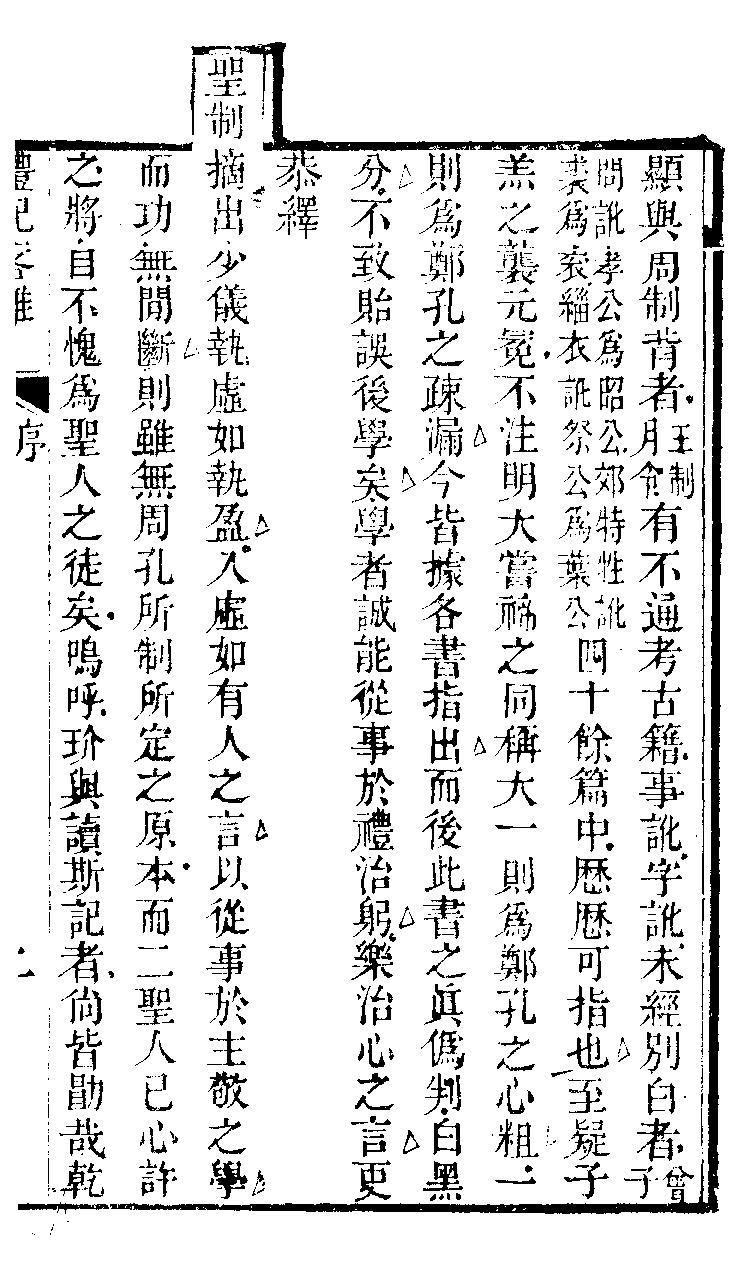 顯與周制背者王制月令有不通考古籍事訛字訛未經別白者曾子
問訛孝公為昭公郊特牲訛裘為衮緇衣訛祭公為葉公四十餘篇中歷歷可指也至疑子
羔之襲元冕不注明大嘗禘之同稱大一則為鄭孔之心粗一
則為鄭孔之疎漏今皆據各書指出而後此書之眞僞判白黑
分不致貽誤後學矣學者誠能從事於禮治躬樂治心之言更
恭繹
聖制摘出少儀執虛如執盈入虛如有人之言以從事於主敬之學
而功無間斷則雖無周孔所制所定之原本而二聖人已心許
之將自不愧為聖人之徒矣嗚呼玠與讀斯記者尙皆勖哉乾
禮記 序 二